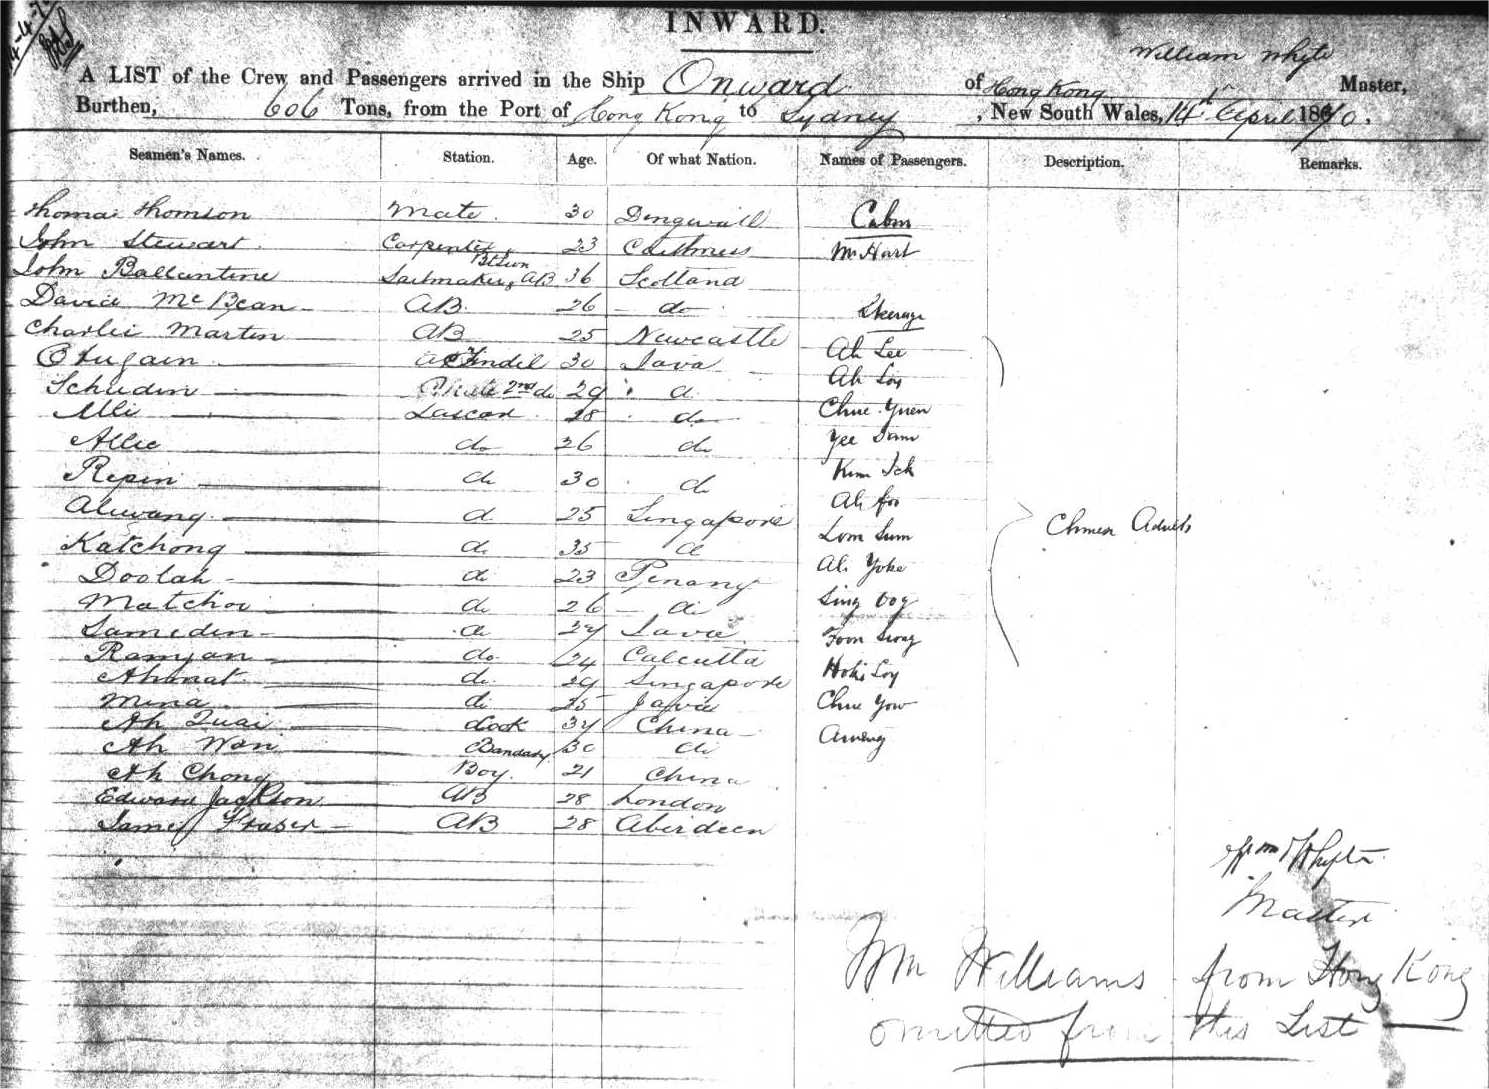 INWARD.
William Whyte
A LIST of the Crew and Passengers arrived in the Ship Onward of Hong Kong Master,
Burthen, 606 Tons, from the Port of Hong Kong to Sydney , New South Wales, 14 April 1870.
Seamen's Names. Station. Age. Of what Nation. Names of Passengers. Description. Remarks.
Thomas Thomson Mate. 30 Dingwall Cabin
John Stewart. Carpenter 23 Caithness Mr Hart
John Ballantine Sailmaker & AB 36 Scotland
David McBean AB. 26 do Steerage
Charlie Martin AB 25 Newcastle Ah Lee
30 Java Ah Loy
2nd do 29 do Chue Yuen
Alli Lascar 28 do Yee
Allie do 26 do Kim
Repin do 30 do Ah foo
Aluwang do 25 Singapore Lom Sum Chinese Adults
Katchong do 35 do Ah Yoke
Doolah do 23 Penang Sing
Matchoi do 26 do
Samedin do 27 Java
Ramjan do 24 Calcutta Loy
Ahmat do 29 Singapore Chue Yow
Mina do 25 Java
Ah Quai Cook 37 China
Ah Wan Bandary 30 do
Ah Chong Boy. 21 China
Edward Jackson AB 28 London
James Fraser AB 28 Aberdeen
Wm Whyte
Master
Wm Williams from Hong Kong
omitted from this List